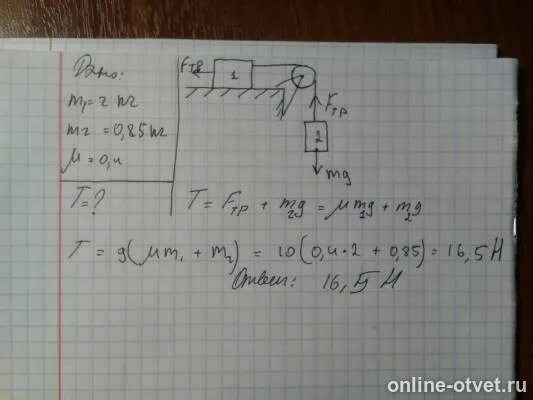 Дано:
m₁ = 2 кг
m₂ = 0,85 кг
μ = 0,4
T = ?
Fтр
1
Fтр
2
mg
T = Fтр + m₂g = μm₁g + m₂g
T = g(μm₁ + m₂) = 10(0,4·2 + 0,85) = 16,5 Н
Ответ: 16,5 Н
online-otvet.ru